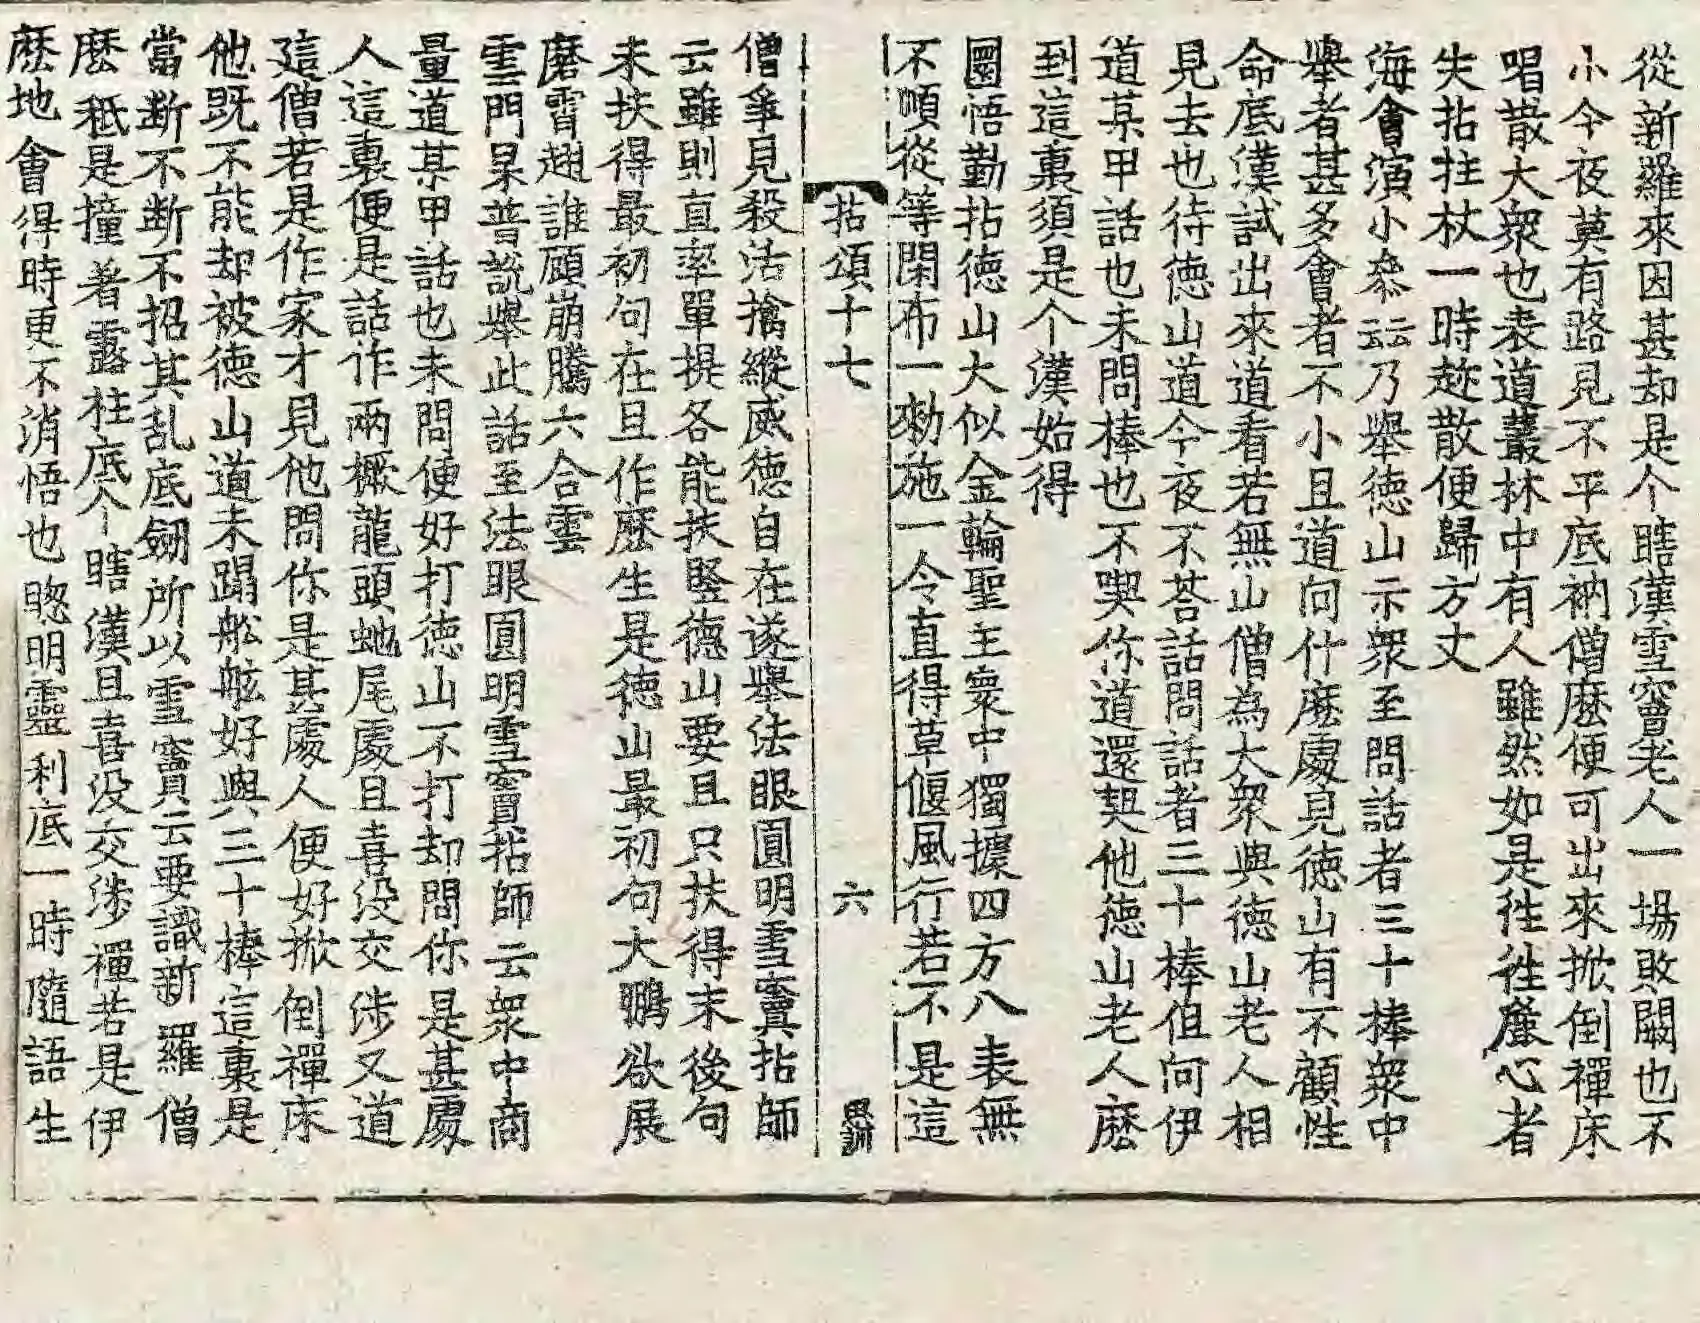 從新羅來因甚却是个瞎漢雪竇老人一場敗闕也不
小今夜莫有路見不平底衲僧麽便可出來掀倒禪床
喝散大衆也表道叢林中有人雖然如是徃徃麁心者
失拈拄杖一時趂散便歸方丈
海會演小叅云云乃擧德山示衆至問話者三十棒衆中
擧者甚多會者不小且道向什麽處見德山有不顧性
命底漢試出來道看若無山僧為大衆與德山老人相
見去也待德山道今夜不荅話問話者三十棒但向伊
道某甲話也未問棒也不喫你道還契他德山老人麽
到這裏須是个漢始得
圜悟勤拈德山大似金輪聖主寰中獨據四方八表無
不順從等閑布一勑施一令直得草偃風行若不是這
拈頌十七 六
僧爭見殺活擒縱威德自在遂擧法眼圓明雪竇拈師
云雖則直率單提各能扶竪德山要且只扶得末後句
未扶得最初句在且作麽生是德山最初句大鵬欲展
磨霄翅誰顧崩騰六合雲
雲門杲普說擧此話至法眼圓明雪竇拈師云衆中商
量道某甲話也未問便好打德山不打却問你是甚處
人這裏便是話作兩橛龍頭虵尾處且喜没交渉又道
這僧若是作家才見他問你是甚處人便好掀倒禪床
他既不能却被德山道未蹋舩舷好與三十棒這裏是
當斷不斷不招其亂底劒所以雪竇云要識新羅僧
麽秖是撞着露柱底个瞎漢且喜没交渉禪若是伊
麽地會得時更不消悟也聦明靈利底一時隨語生